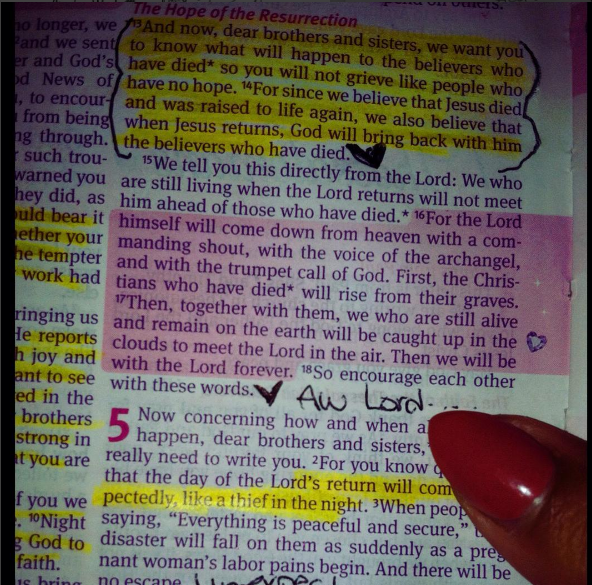 no longer, we
²and we sent
er and God's
od News of
, to encour-
from being
ng through.
such trou-
warned you
hey did, as
uld bear it
ether your
he tempter
work had
ringing us
He reports
h joy and
ant to see
ed in the
brothers
strong in
at you are
f you we
. ¹⁰Night
g God to
faith.
us bring
on others.
The Hope of the Resurrection
¹³And now, dear brothers and sisters, we want you
to know what will happen to the believers who
have died* so you will not grieve like people who
have no hope. ¹⁴For since we believe that Jesus died
and was raised to life again, we also believe that
when Jesus returns, God will bring back with him
the believers who have died.
¹⁵We tell you this directly from the Lord: We who
are still living when the Lord returns will not meet
him ahead of those who have died.* ¹⁶For the Lord
himself will come down from heaven with a com-
manding shout, with the voice of the archangel,
and with the trumpet call of God. First, the Chris-
tians who have died* will rise from their graves.
¹⁷Then, together with them, we who are still alive
and remain on the earth will be caught up in the
clouds to meet the Lord in the air. Then we will be
with the Lord forever. ¹⁸So encourage each other
with these words. Aw Lord...
5 Now concerning how and when a
happen, dear brothers and sisters,
really need to write you. ²For you know
that the day of the Lord's return will com
pectedly, like a thief in the night. ³When peop
saying, "Everything is peaceful and secure,"
disaster will fall on them as suddenly as a preg
nant woman's labor pains begin. And there will be
no escape.